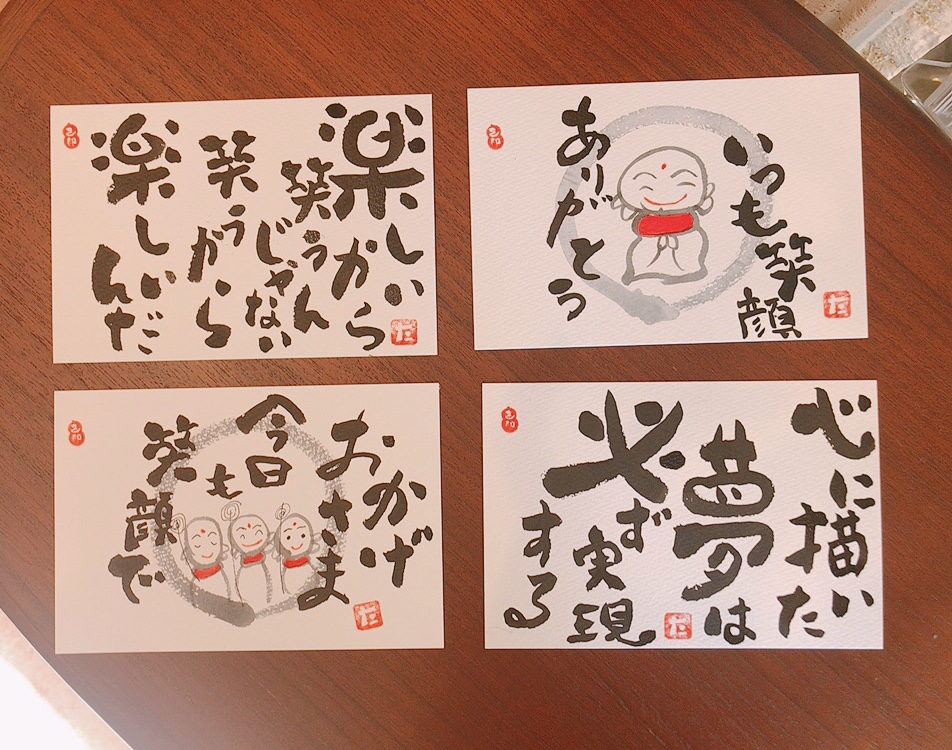 楽しいから
笑うんじゃない
笑うから
楽しいんだ
いつも笑顔
ありがとう
おかげさま
今日も
笑顔で
心に描いた
夢は
必ず実現
する